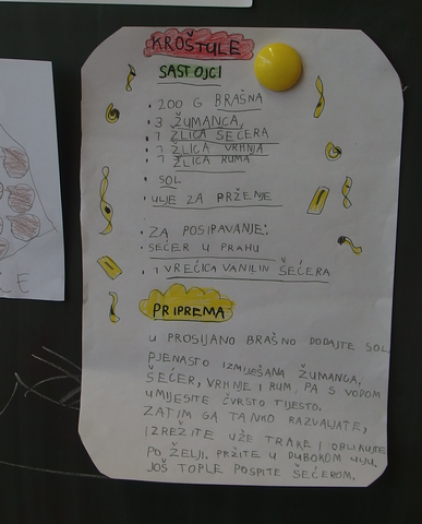 KROŠTULE
SASTOJCI
• 200 G BRAŠNA
• 3 ŽUMANCA,
• 1 ŽLICA ŠEĆERA
• 1 ŽLICA VRHNJA
• 1 ŽLICA RUMA
• SOL
• ULJE ZA PRŽENJE
• ZA POSIPAVANJE:
• ŠEĆER U PRAHU
• 1 VREĆICA VANILIN ŠEĆERA
PRIPREMA
U PROSIJANO BRAŠNO DODAJTE SOL
PJENASTO IZMIJEŠANA ŽUMANCA,
ŠEĆER, VRHNJE I RUM, PA S VODOM
UMIJESITE ČVRSTO TIJESTO.
ZATIM GA TANKO RAZVALJATE,
IZREŽITE UŽE TRAKE I OBLIKUJTE
PO ŽELJI. PRŽITE U DUBOKOM ULJU.
JOŠ TOPLE POSPITE ŠEĆEROM.